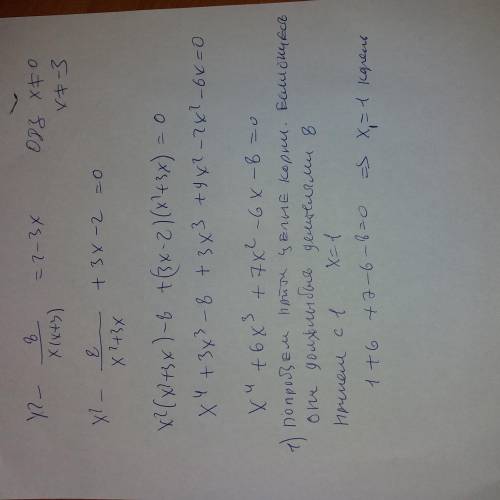 x² - 8/x(x+3) = 2-3x ОДЗ x≠0
x≠-3
x² - 8/x²+3x + 3x-2 = 0
x²(x²+3x)-8 + (3x-2)(x²+3x) = 0
x⁴+3x³-8+3x³+9x²-2x²-6x=0
x⁴+6x³+7x²-6x-8=0
1) Попробуем найти целые корни.
они должны быть делителями 8
Начнем с 1 x=1
1+6+7-6-8=0 => x₁=1 корень